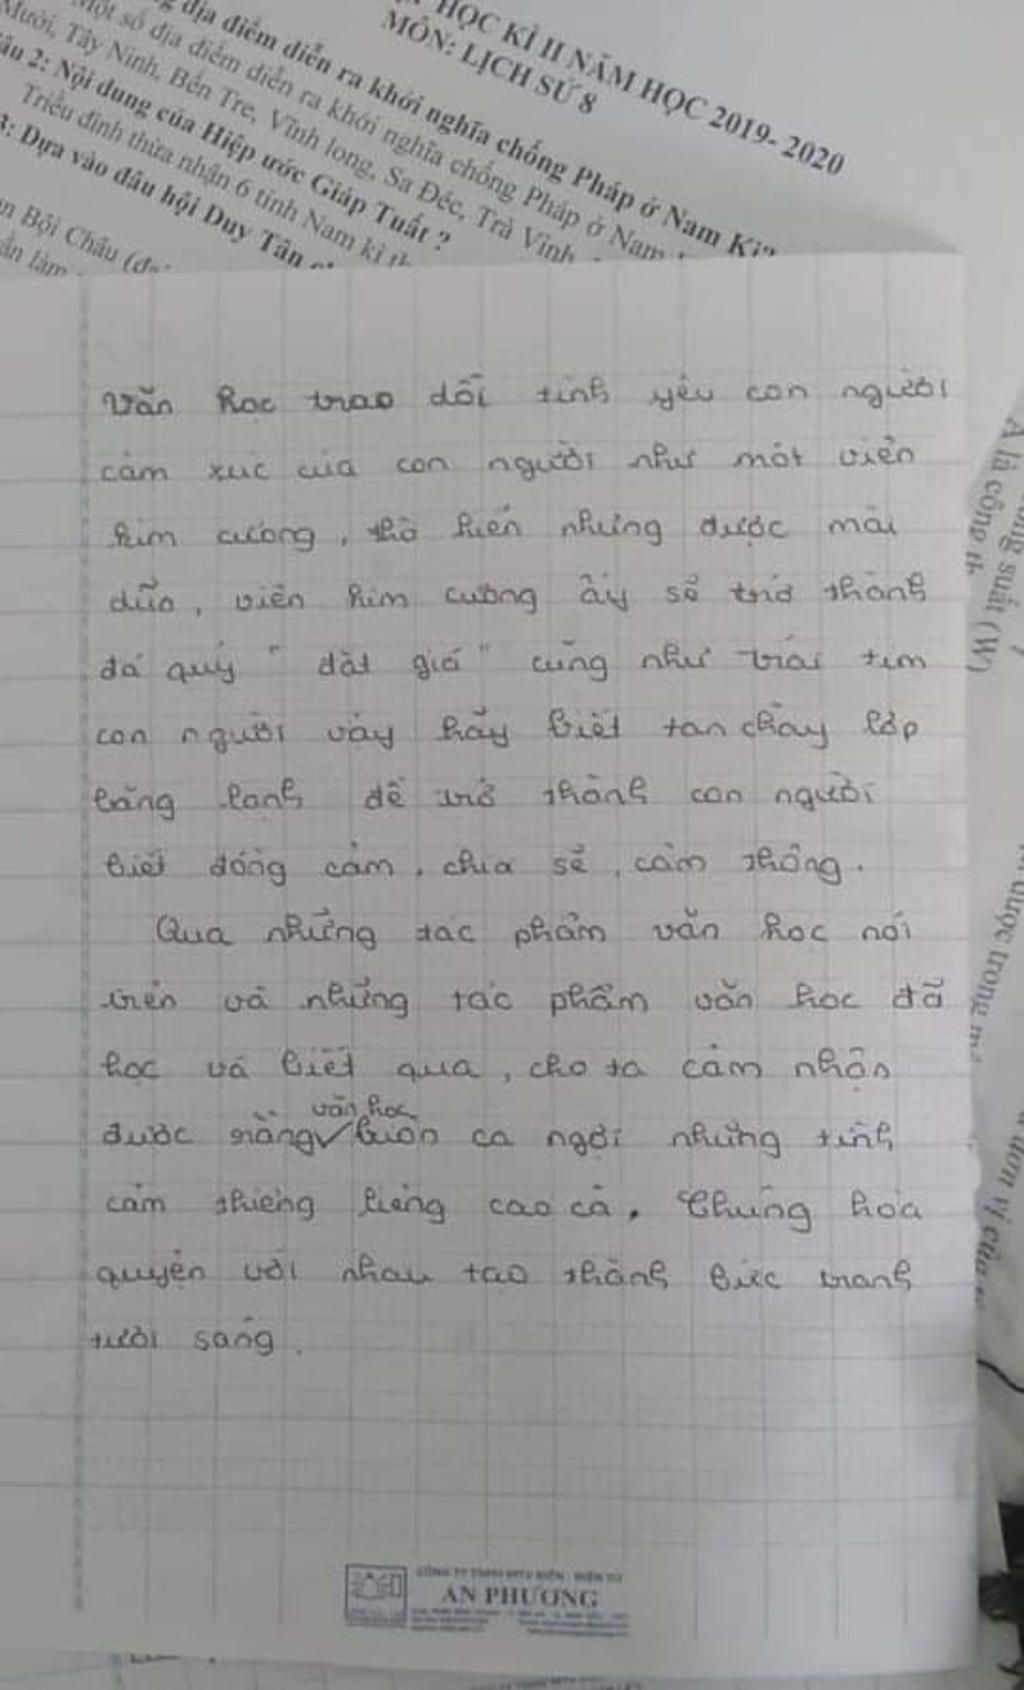 HỌC KÌ II NĂM HỌC 2019- 2020
MÔN: LỊCH SỬ 8
địa điểm diễn ra khởi nghĩa chống Pháp ở Nam Kì?
Một số địa điểm diễn ra khởi nghĩa chống Pháp ở Nam
Mười, Tây Ninh, Bến Tre, Vĩnh long, Sa Đéc, Trà Vinh
2: Nội dung của Hiệp ước Giáp Tuất ?
Triều đình thừa nhận 6 tỉnh Nam kì
3: Dựa vào đâu hội Duy Tân
Bội Châu
làm
Văn học trao dồi tình yêu con người
cảm xúc của con người như một viên
kim cương, thô kiển nhưng được mài
dũa, viên kim cương ấy sẽ trở thành
đá quý " đắt giá " cũng như trái tim
con người vậy hãy biết tan chảy lớp
băng lạnh để trở thành con người
biết đồng cảm, chia sẻ, cảm thông.
Qua những tác phẩm văn học nói
trên và những tác phẩm văn học đã
học và biết qua, cho ta cảm nhận
văn học
được rằng luôn ca ngợi những tình
cảm thiêng liêng cao cả. Chúng hòa
quyện với nhau tạo thành bức tranh
tươi sáng.
suất (W)
A là công
được trong
đơn vị của
AN PHƯƠNG